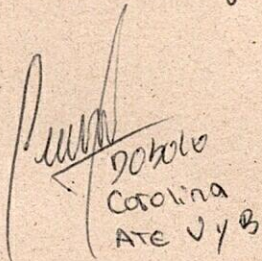 DOBOLO
Carolina
ATE V y B